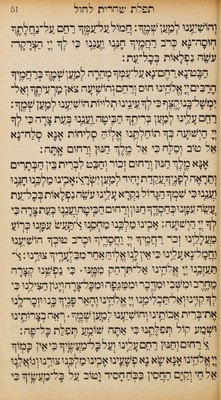 תפלת שחרית לחול 51
וְהוֹשִׁיעֵנוּ לְמַעַן שְׁמֶךָ: חֲמוֹל עַל־עַמְּךָ רַחֵם עַל־נַחֲלָתֶךָ
חוּסָה־נָּא כְּרֹב רַחֲמֶיךָ חָנֵּנוּ וַעֲנֵנוּ כִּי לְךָ יְיָ הַצְּדָקָה
עֹשֵׂה נִפְלָאוֹת בְּכָל־עֵת:
הַבֶּט־נָא רַחֶם־נָא עַל־עַמְּךָ מְהֵרָה לְמַעַן שְׁמֶךָ בְּרַחֲמֶיךָ
הָרַבִּים יְיָ אֱלֹהֵינוּ חוּס וְרַחֵם וְהוֹשִׁיעָה צֹאן מַרְעִיתֶךָ וְאַל
יִמְשָׁל־בָּנוּ קֶצֶף כִּי לְךָ עֵינֵינוּ תְלוּיוֹת הוֹשִׁיעֵנוּ לְמַעַן שְׁמֶךָ:
רַחֵם עָלֵינוּ לְמַעַן בְּרִיתֶךָ הַבִּיטָה וַעֲנֵנוּ בְּעֵת צָרָה כִּי לְךָ
יְיָ הַיְשׁוּעָה בְּךָ תוֹחַלְתֵּנוּ אֱלוֹהַּ סְלִיחוֹת אָנָּא סְלַח־נָא
אֵל טוֹב וְסַלָּח כִּי אֵל מֶלֶךְ חַנּוּן וְרַחוּם אָתָּה:
אָנָּא מֶלֶךְ חַנּוּן וְרַחוּם זְכוֹר וְהַבֵּט לִבְרִית בֵּין הַבְּתָרִים
וְתֵרָאֶה לְפָנֶיךָ עֲקֵדַת יָחִיד לְמַעַן יִשְׂרָאֵל אָבִינוּ מַלְכֵּנוּ חָנֵּנוּ
וַעֲנֵנוּ כִּי שִׁמְךָ הַגָּדוֹל נִקְרָא עָלֵינוּ עֹשֵׂה נִפְלָאוֹת בְּכָל־עֵת
עֲשֵׂה עִמָּנוּ כְּחַסְדֶּךָ חַנּוּן וְרַחוּם הַבִּיטָה וַעֲנֵנוּ בְּעֵת צָרָה כִּי
לְךָ יְיָ הַיְשׁוּעָה: אָבִינוּ מַלְכֵּנוּ מַחְסֵנוּ אַל־תַּעַשׂ עִמָּנוּ כְּרוֹעַ
מַעֲלָלֵינוּ זְכוֹר רַחֲמֶיךָ יְיָ וַחֲסָדֶיךָ וּכְרֹב טוּבְךָ הוֹשִׁיעֵנוּ
וַחֲמָל־נָא עָלֵינוּ כִּי אֵין לָנוּ אֱלוֹהַּ אַחֵר מִבַּלְעָדֶיךָ צוּרֵנוּ: אַל
תַּעַזְבֵנוּ יְיָ אֱלֹהֵינוּ אַל־תִּרְחַק מִמֶּנּוּ: כִּי נַפְשֵׁנוּ קְצָרָה
מֵחֶרֶב וּמִשְּׁבִי וּמִדֶּבֶר וּמִמַּגֵּפָה וּמִכָּל־צָרָה וְיָגוֹן הַצִּילֵנוּ כִּי
לְךָ קִוִּינוּ וְאַל־תַּכְלִימֵנוּ יְיָ אֱלֹהֵינוּ וְהָאֵר פָּנֶיךָ בָּנוּ וּזְכָר־לָנוּ
אֶת־בְּרִית אֲבוֹתֵינוּ וְהוֹשִׁיעֵנוּ לְמַעַן שְׁמֶךָ: רְאֵה בְצָרוֹתֵינוּ
וּשְׁמַע קוֹל תְּפִלָּתֵנוּ כִּי אַתָּה שׁוֹמֵעַ תְּפִלַּת כָּל־פֶּה:
אֵל רַחוּם וְחַנּוּן רַחֵם עָלֵינוּ וְעַל כָּל־מַעֲשֶׂיךָ כִּי אֵין כָּמוֹךָ
יְיָ אֱלֹהֵינוּ אָנָּא שָׂא נָא פְשָׁעֵינוּ אָבִינוּ מַלְכֵּנוּ צוּרֵנוּ וְגוֹאֲלֵנוּ
אֵל חַי וְקַיָּם הַחֲסִין בַּכֹּחַ חָסִיד וָטוֹב עַל כָּל־מַעֲשֶׂיךָ כִּי